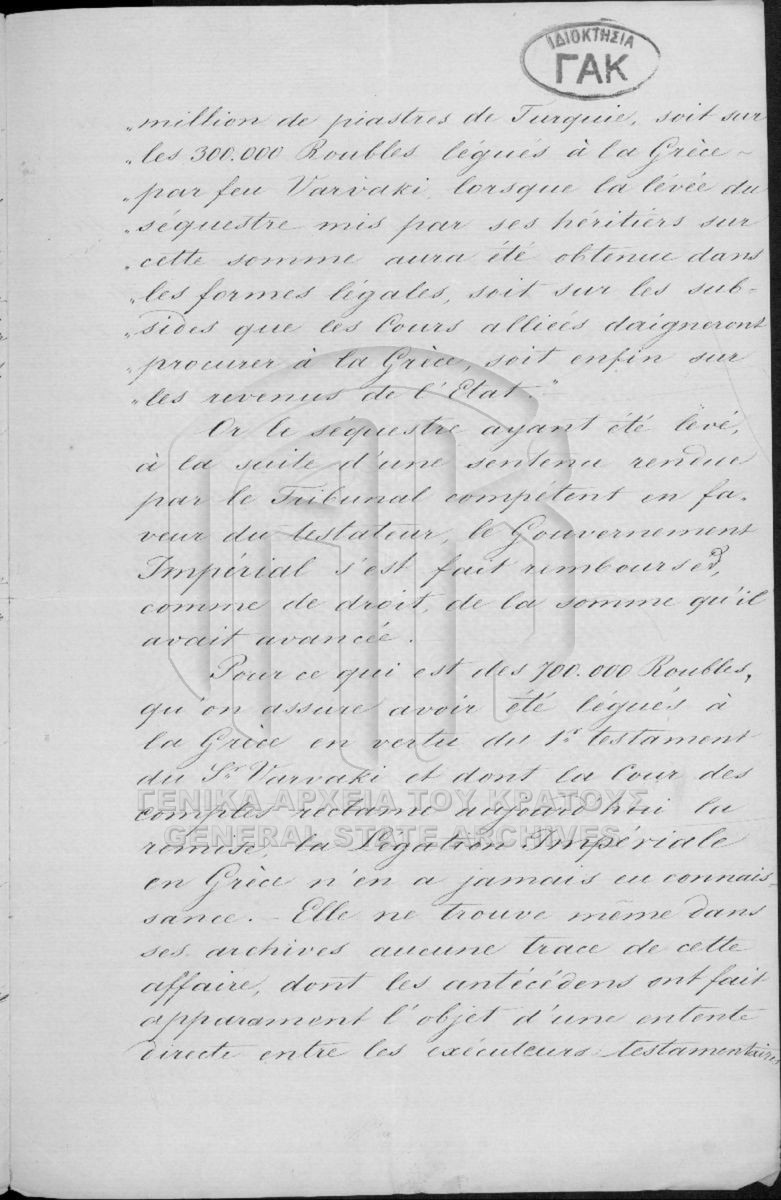 ΙΔΙΟΚΤΗΣΙΑ
ΓΑΚ
„million de piastres de Turquie, soit sur
„les 300.000 Roubles légués à la Grèce –
„par feu Varvaki, lorsque la lévée du
„séquestre mis par ses héritiers sur
„cette somme aura été obtenue dans
„les formes légales, soit sur les sub-
„sides que les Cours alliées daigneront
„procurer à la Grèce, soit enfin sur
„les revenus de l'Etat."
Or le séquestre ayant été levé,
à la suite d'une sentence rendue
par le Tribunal compétent en fa-
veur du testateur, le Gouvernement
Impérial s'est fait rembourser,
comme de droit, de la somme qu'il
avait avancée.
Pour ce qui est des 700.000 Roubles,
qu'on assure avoir été légués à
la Grèce en vertu du 1er testament
du Sr Varvaki et dont la Cour des
comptes réclame aujourd'hui la
remise, la Légation Impériale
en Grèce n'en a jamais eu connais-
sance. – Elle ne trouve même dans
ses archives aucune trace de cette
affaire, dont les antécédens ont fait
apparament l'objet d'une entente
directe entre les exécuteurs testamentaires
ΓΕΝΙΚΑ ΑΡΧΕΙΑ ΤΟΥ ΚΡΑΤΟΥΣ
GENERAL STATE ARCHIVES